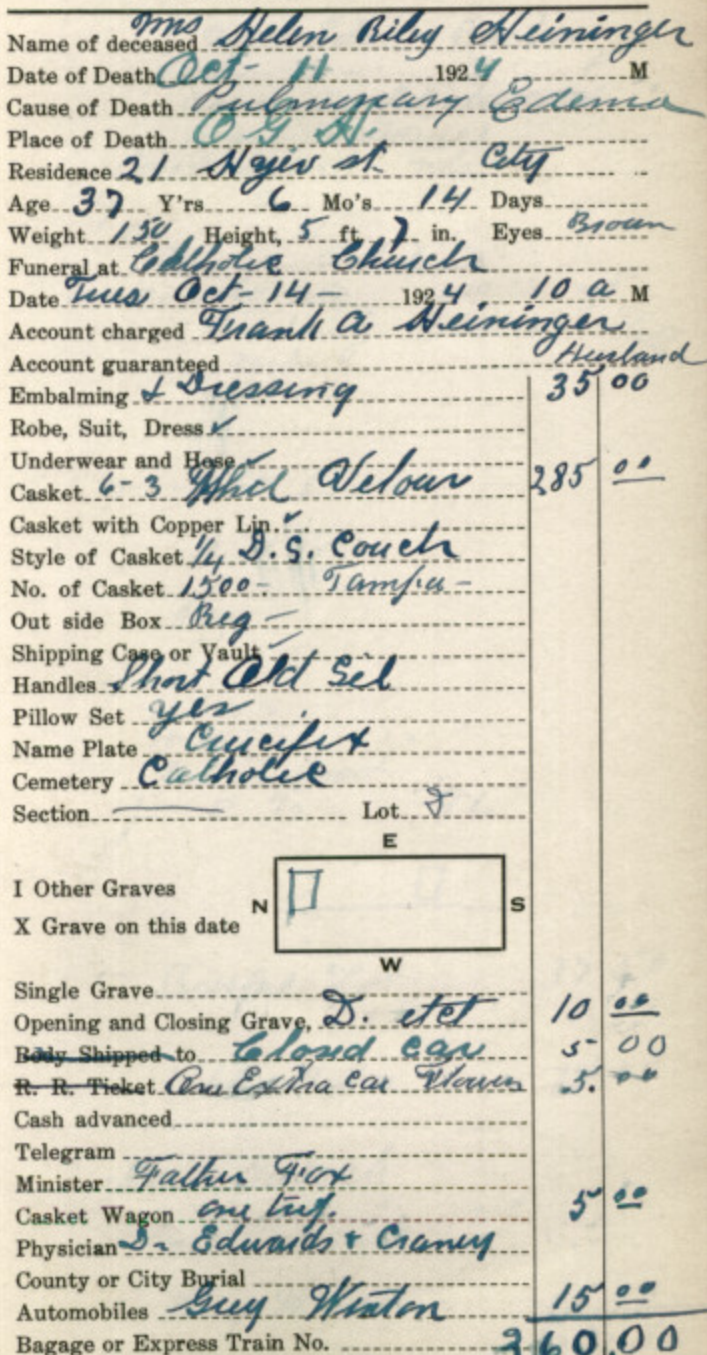 Name of deceased Mrs Helen Riley Heininger
Date of Death Oct - 11 1924 M
Cause of Death Pulmonary Edema
Place of Death O G H.
Residence 21 st City
Age 37 Y'rs 6 Mo's 14 Days
Weight 150 Height, 5 ft 7 in. Eyes Brown
Funeral at Catholic Church
Date Tues Oct - 14 - 1924 10 a M
Account charged Frank A Heininger
Account guaranteed Husband
Embalming & Dressing 35 00
Robe, Suit, Dress ✓
Underwear and Hose ✓
Casket 6-3 Velour 285 00
Casket with Copper Lin. ✓
Style of Casket 1/4 D.S. Couch
No. of Casket 1500 - Tampa -
Out side Box Reg -
Shipping Case or Vault -
Handles Short Old Sil
Pillow Set yes
Name Plate Crucifix
Cemetery Catholic
Section Lot
E
I Other Graves
N S
X Grave on this date
W
Single Grave
Opening and Closing Grave, D. 10 00
Body Shipped to Closed Car 5 00
R. R. Ticket One Extra Car Flowers 5. 00
Cash advanced
Telegram
Minister Father Fox
Casket Wagon one trip. 5 00
Physician D. Edwards + Craney
County or City Burial
Automobiles Guy Winton 15 00
Bagage or Express Train No. 360.00